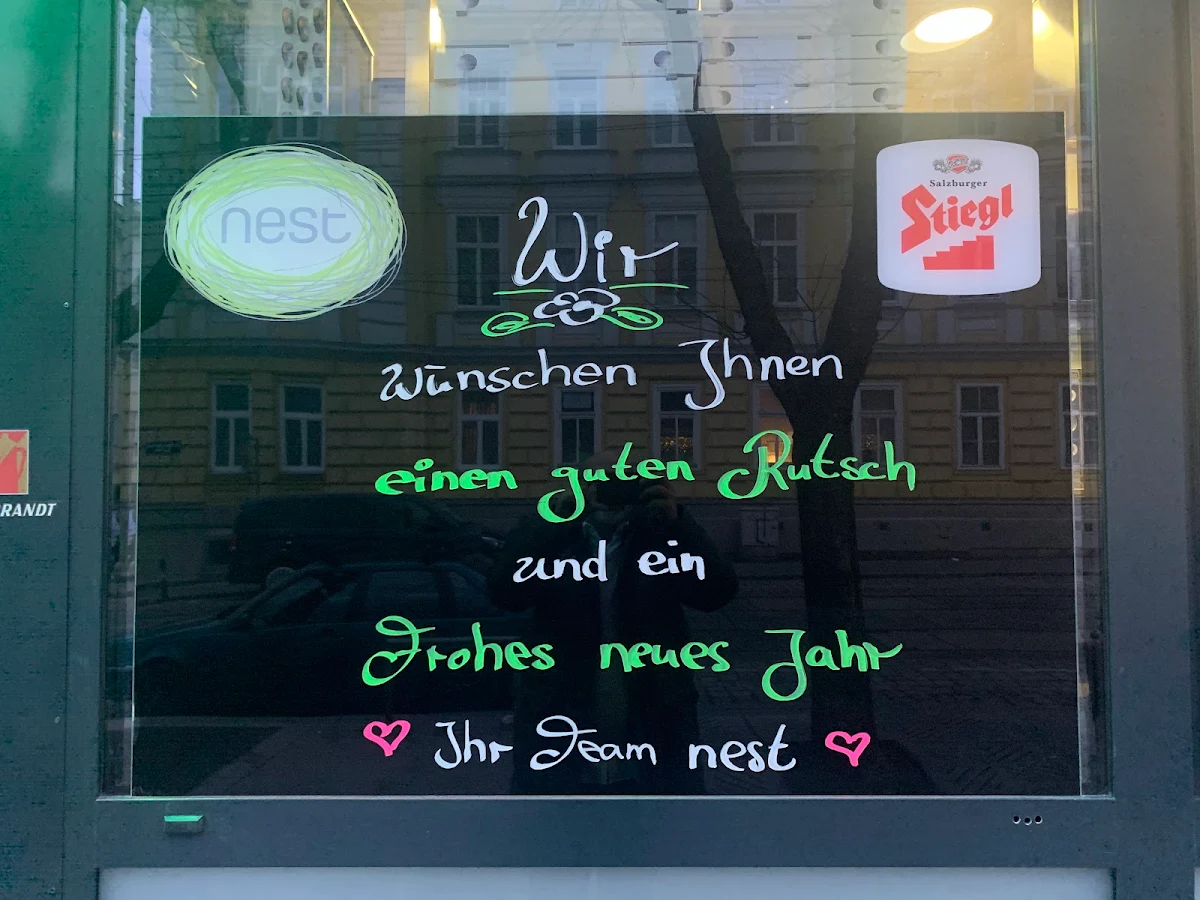 nest
Salzburger
Stiegl
Wir
wünschen Ihnen
einen guten Rutsch
und ein
Frohes neues Jahr
Ihr Team nest
RANDT